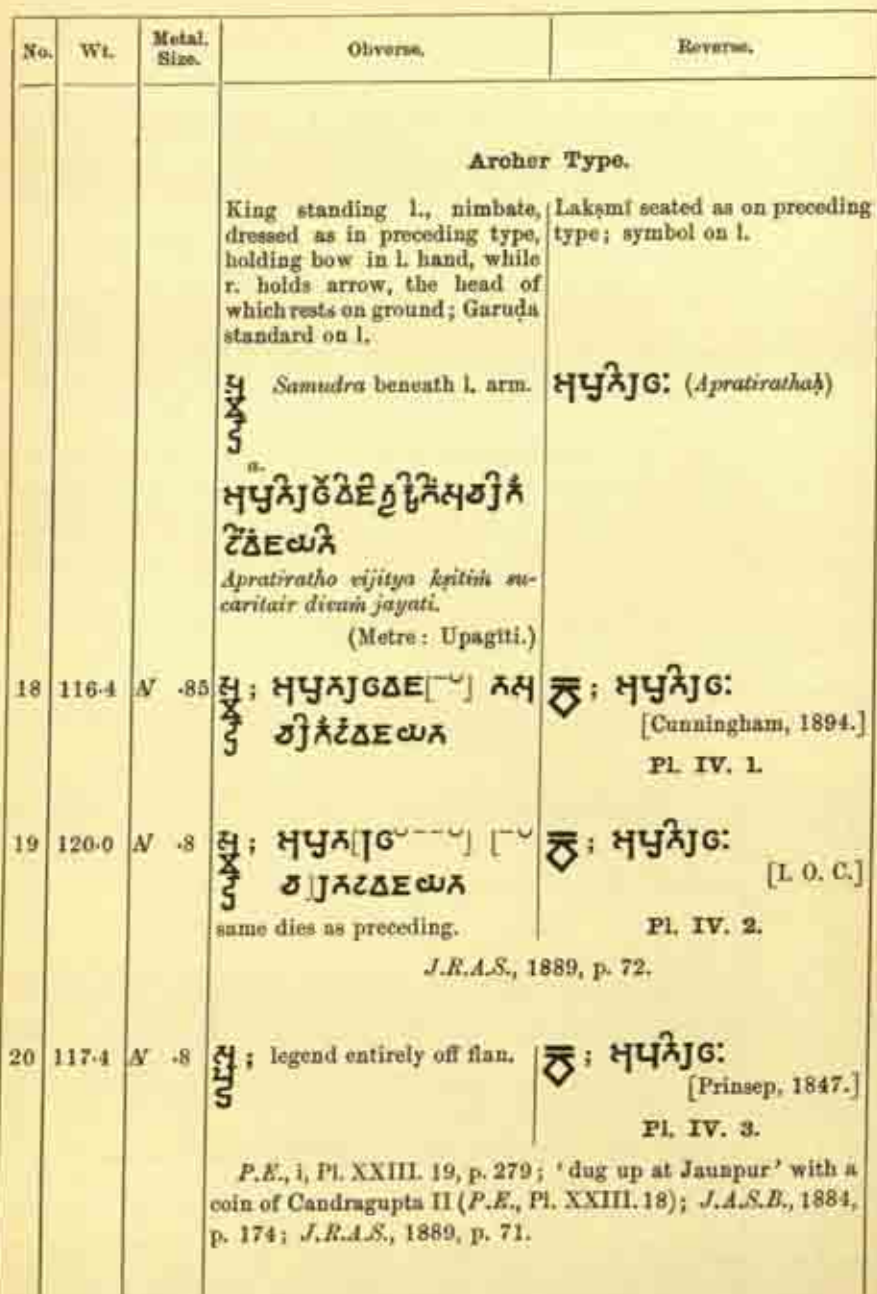 No. Wt. Metal. Size. Obverse. Reverse.
Archer Type.
King standing l., nimbate,
dressed as in preceding type,
holding bow in l. hand, while
r. holds arrow, the head of
which rests on ground; Garuḍa
standard on l.
Lakṣmī seated as on preceding
type; symbol on l.
𑀲𑀫𑀼𑀤𑁆𑀭 Samudra beneath l. arm.
𑀅𑀧𑁆𑀭𑀢𑀺𑀭𑀣𑀂 (Apratirathaḥ)
a.
𑀅𑀧𑁆𑀭𑀢𑀺𑀭𑀣𑁄𑀯𑀺𑀚𑀺𑀢𑁆𑀬𑀓𑁆𑀱𑀺𑀢𑀺𑀁𑀲𑀼𑀘𑀭𑀺𑀢𑁃
𑀭𑁆𑀤𑀺𑀯𑀁𑀚𑀬𑀢𑀺
Apratiratho vijitya kṣitiṁ su-
caritair divaṁ jayati.
(Metre: Upagīti.)
18 116·4 N ·85 𑀲𑀫𑀼𑀤𑁆𑀭 ;
; 𑀅𑀧𑁆𑀭𑀢𑀺𑀭𑀣𑀂
[Cunningham, 1894.]
Pl. IV. 1.
19 120·0 N ·8 𑀲𑀫𑀼𑀤𑁆𑀭 ;
same dies as preceding.
; 𑀅𑀧𑁆𑀭𑀢𑀺𑀭𑀣𑀂
[I. O. C.]
Pl. IV. 2.
J.R.A.S., 1889, p. 72.
20 117·4 N ·8 𑀲𑀫𑀼𑀤𑁆𑀭 ; legend entirely off flan.
; 𑀅𑀧𑁆𑀭𑀢𑀺𑀭𑀣𑀂
[Prinsep, 1847.]
Pl. IV. 3.
P.E., i, Pl. XXIII. 19, p. 279; ‘dug up at Jaunpur’ with a
coin of Candragupta II (P.E., Pl. XXIII. 18); J.A.S.B., 1884,
p. 174; J.R.A.S., 1889, p. 71.